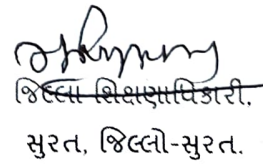 જિલ્લા શિક્ષણાધિકારી.
સુરત, જિલ્લો-સુરત.